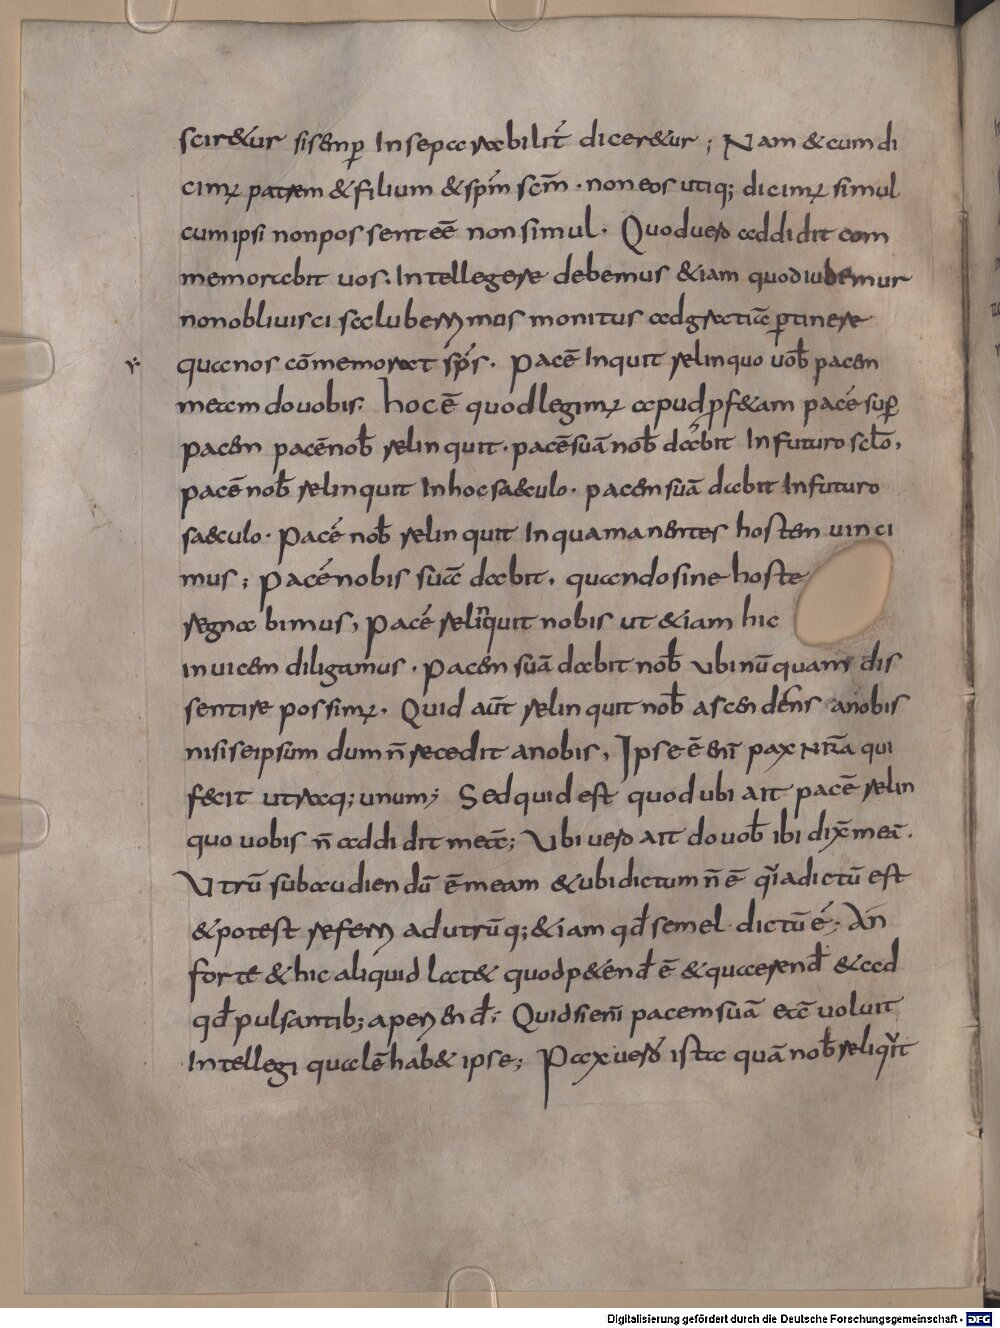 scir&ur sisemp Inseparabilit̄ dicer&ur; Nam & cum di
cimꝰ patrem & filium & sp̄m sc̄m · non eos utiq; dicimꝰ simul
cum ipsi non possent eē non simul · Quod uero addidit com
memorabit uos. Intellegere debemus &iam quod iubemur
non obliuisci saluberrimos monitus ad gratiā ꝑtinere
quae nos cōmemorat sp̄s · Pacē Inquit relinquo uob̄ pacem
meam do uobis. hoc ē quod legimꝰ apud prof&am pacē suꝑ
pacem pacē nob̄ relinquit · pacē suā nob̄ dabit In futuro sclo,
pacē nob̄ relinquit In hoc saeculo · pacem suā dabit In futuro
saeculo · Pacē nob̄ relinquit In qua manentes hostem uinci
mus; Pacē nobis suā dabit, quando sine hoste
regnabimus, Pacē relinquit nobis ut &iam hic
inuicem diligamus · Pacem suā dabit nob̄ ubi nūquam dis
sentire possimꝰ. Quid aut̄ relinquit nob̄ ascendens a nobis
nisi seipsum dum n̄ recedit a nobis, Ipse ē eni pax nr̄a qui
fecit utraq; unum; Sed quid est quod ubi ait pacē relin
quo uobis n̄ addidit meā; Ubi uero ait do uob̄ ibi dix̄ meā.
Utrū subaudiendū ē meam & ubi dictum n̄ ē q̄a dictū est
& potest referri ad utrūq; &iam qd̄ semel dictū ē; An
forte & hic aliquid lat& quod p&end̄ ē & quaerend̄ & ad
qd̄ pulsantib; aperiend̄; Quid si eni pacem suā eā uoluit
Intellegi qualē hab& ipse; Pax uero ista quā nob̄ reliqit